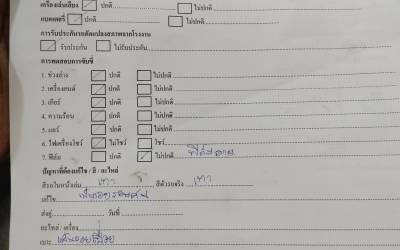 เครื่องเล่นเสียง ปกติ ไม่ปกติ
แบตเตอรี่ ปกติ ไม่ปกติ
การรับประกันการดัดแปลงสภาพจากโรงงาน
รับประกัน ไม่รับประกัน
การทดสอบการขับขี่
1. ช่วงล่าง ปกติ ไม่ปกติ
2. เครื่องยนต์ ปกติ ไม่ปกติ
3. เกียร์ ปกติ ไม่ปกติ
4. ความร้อน ปกติ ไม่ปกติ
5. แอร์ ปกติ ไม่ปกติ
6. ไฟเครื่องโชว์ ไม่โชว์ โชว์
7. ฟิล์ม ปกติ ไม่ปกติ
ปัญหาที่ต้องแก้ไข / สี / อะไหล่
สีรถในหน้าเล่ม เทา สีตัวรถจริง เทา
แก้ไข
ส่งอู่ วันที่
อะไหล่ / เครื่อง
เบาะ